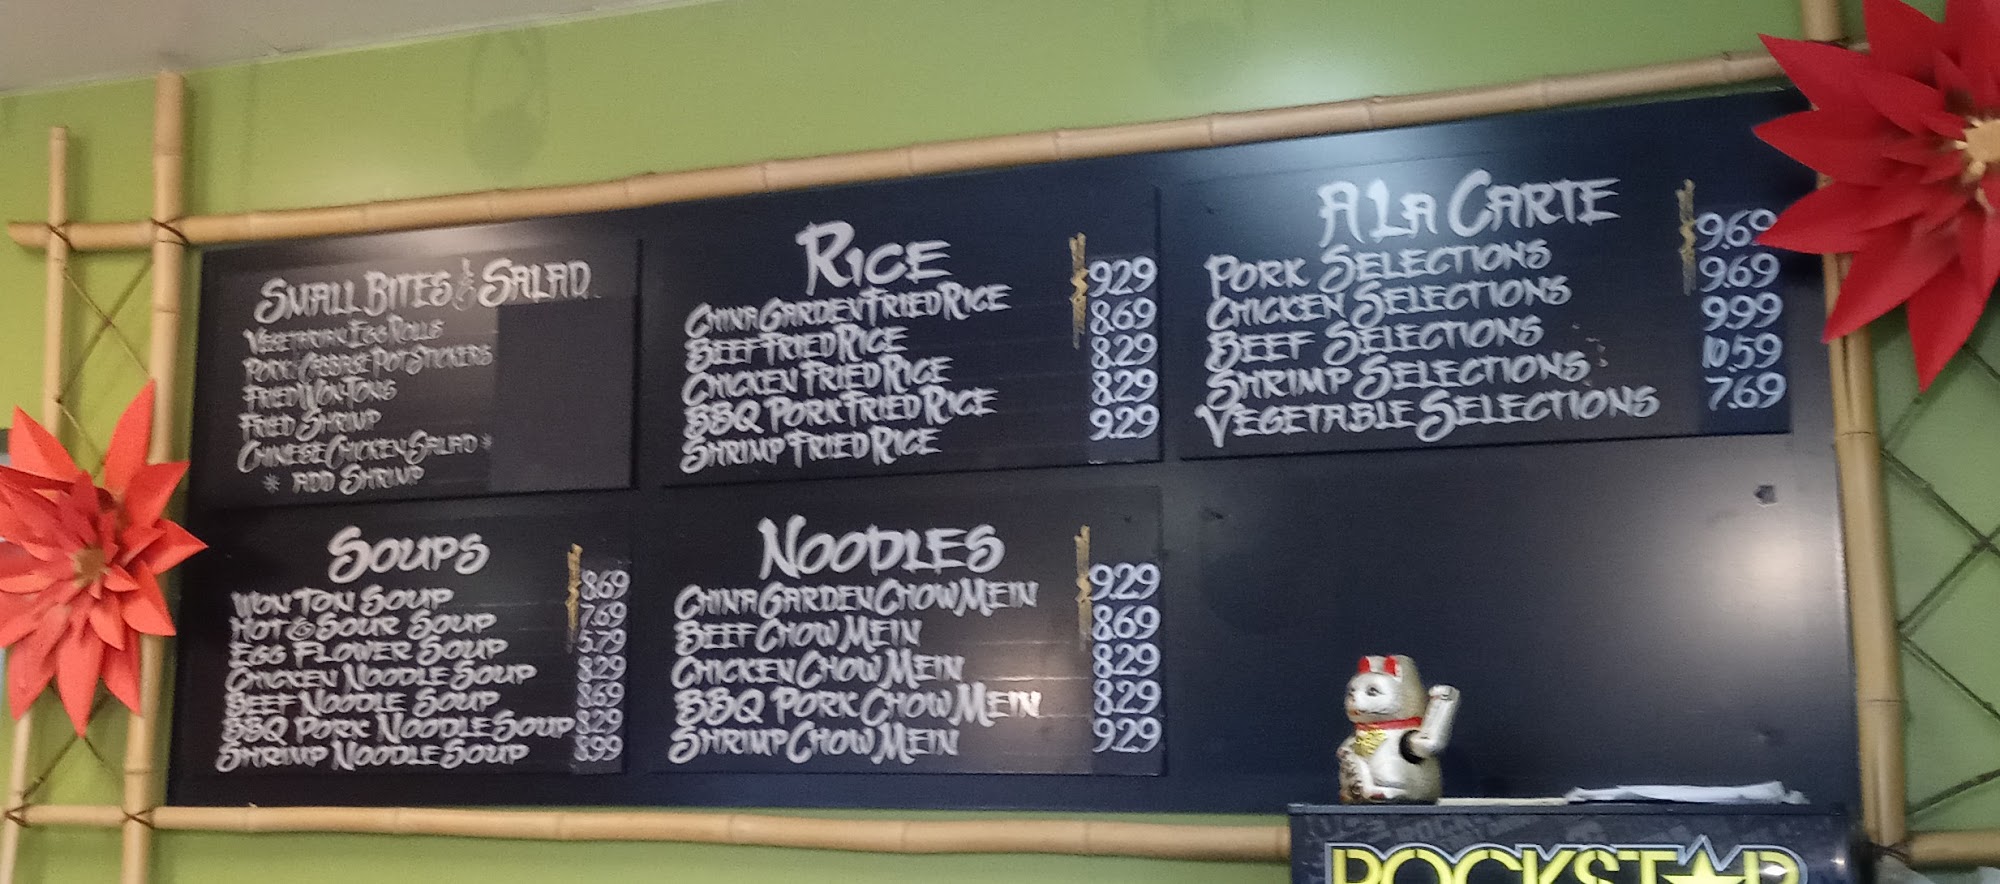 Small Bites & Salad
Vegetarian Egg Rolls
Pork & Cabbage Pot Stickers
Fried Won Tons
Fried Shrimp
Chinese Chicken Salad *
* Add Shrimp
Soups
Won Ton Soup 8.69
Hot & Sour Soup 7.69
Egg Flower Soup 5.79
Chicken Noodle Soup 8.29
Beef Noodle Soup 8.69
BBQ Pork Noodle Soup 8.29
Shrimp Noodle Soup 8.99
Rice
China Garden Fried Rice 9.29
Beef Fried Rice 8.69
Chicken Fried Rice 8.29
BBQ Pork Fried Rice 8.29
Shrimp Fried Rice 9.29
Noodles
China Garden Chow Mein 9.29
Beef Chow Mein 8.69
Chicken Chow Mein 8.29
BBQ Pork Chow Mein 8.29
Shrimp Chow Mein 9.29
A La Carte
Pork Selections 9.69
Chicken Selections 9.69
Beef Selections 9.99
Shrimp Selections 10.59
Vegetable Selections 7.69
ROCKSTAR